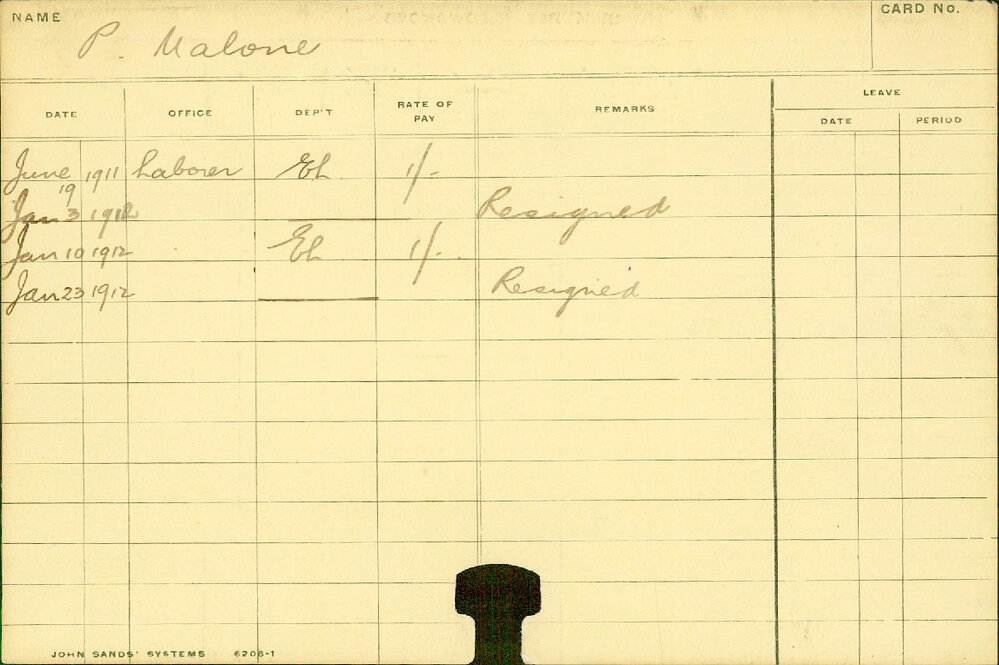 NAME P. Malone CARD No.
DATE OFFICE DEP'T RATE OF PAY REMARKS LEAVE
DATE PERIOD
June 19 1911 Laborer EL 1/-
Jan 3 1912 Resigned
Jan 10 1912 EL 1/-
Jan 23 1912 Resigned
JOHN SANDS' SYSTEMS 6206-1